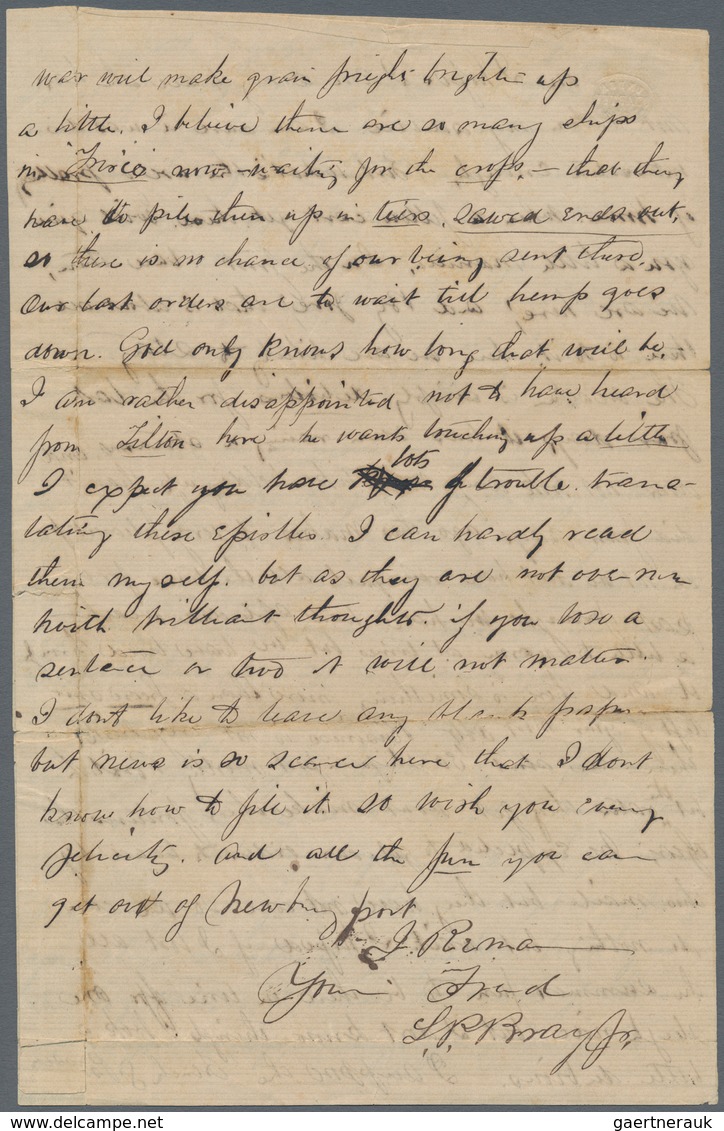 war will make grain freights brighten up
a little. I believe there are so many ships
in Frisco now waiting for the crops, – that they
have to pile them up in tiers, sawed ends out,
so there is no chance of our being sent there
Our last orders are to wait till hemp goes
down. God only knows how long that will be.
I am rather disappointed not to have heard
from Tilton here he wants touching up a little
I expect you have lots of trouble trans-
lating these epistles. I can hardly read
them myself. but as they are not over run
with brilliant thoughts. if you lose a
sentence or two it will not matter.
I dont like to leave any blank paper
but news is so scarce here that I dont
know how to fill it so wish you every
felicity. and all the fun you can
get out of Newburyport
I. Remain
Your Friend
S.P. Bray Jr.
gaertnerauk